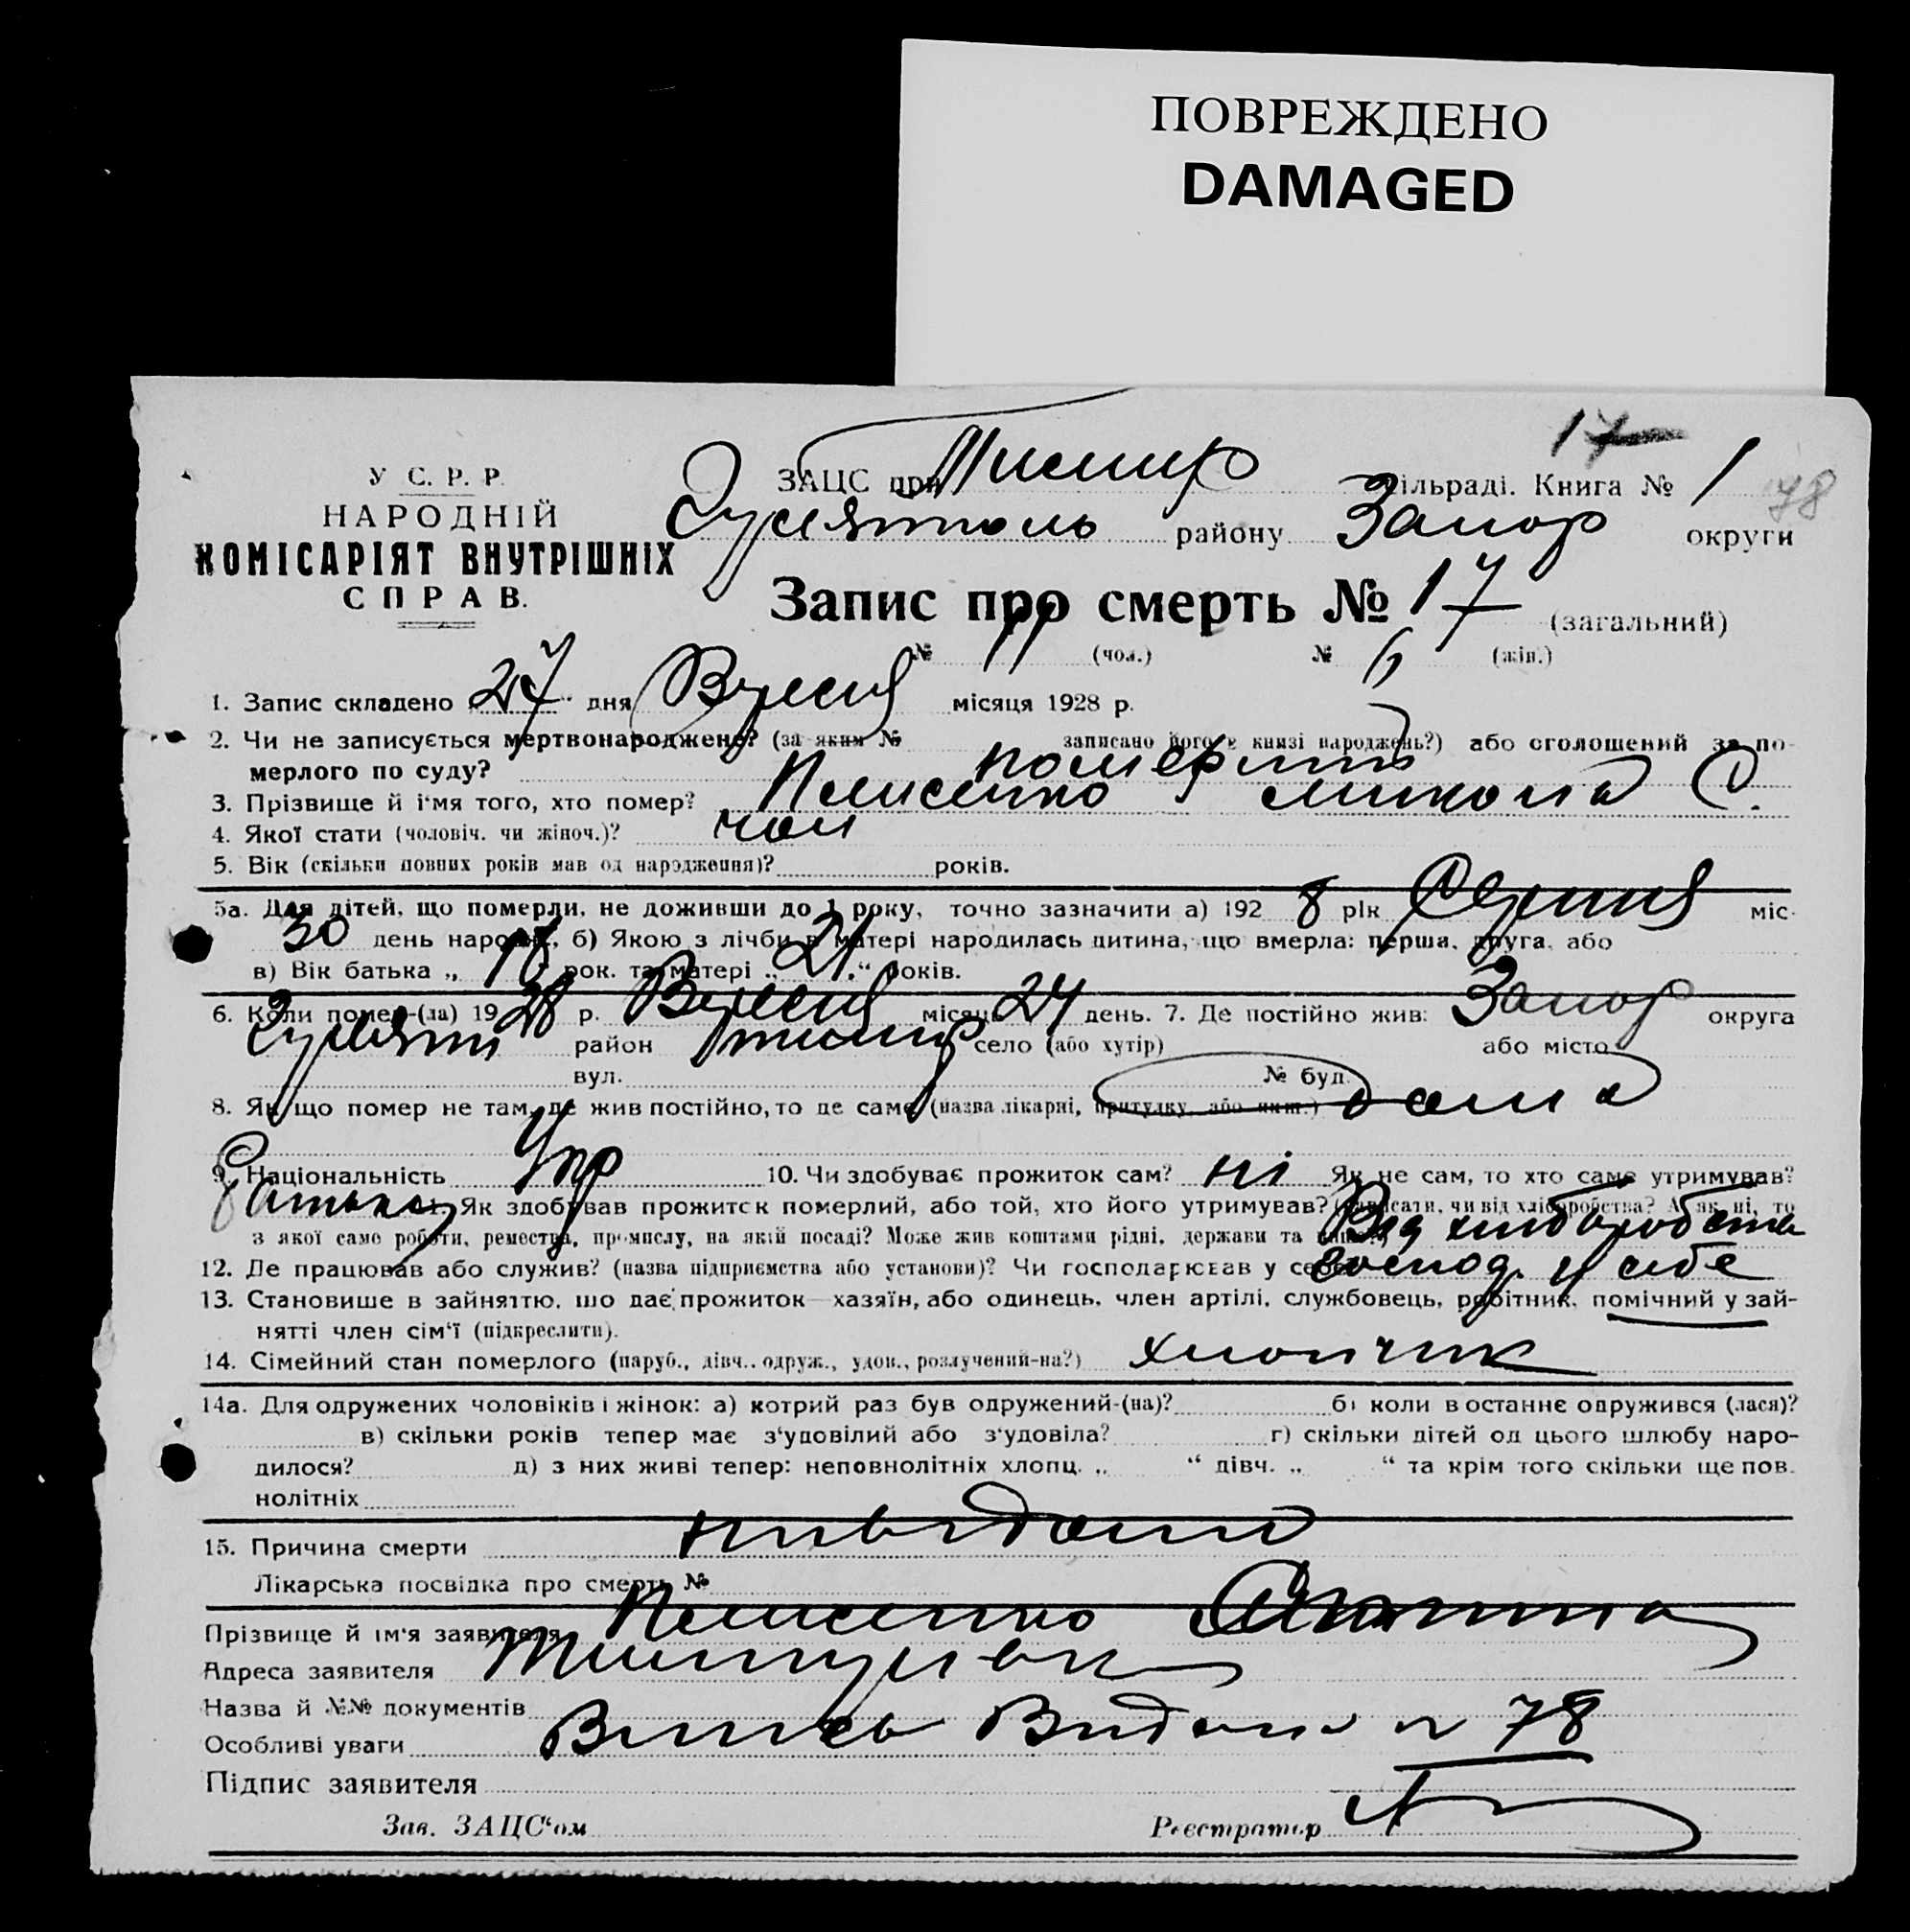 ПОВРЕЖДЕНО
DAMAGED
17
У С. Р. Р.
НАРОДНІЙ
КОМІСАРІЯТ ВНУТРІШНІХ
СПРАВ.
ЗАЦС при Тимир сільраді. Книга № 1 78
району Запор округи
Запис про смерть № 17 (загальний)
№ 11 (чол.) № 6 (жін.)
1. Запис складено 27 дня Вересня місяця 1928 р.
2. Чи не записується мертвонароджене? (за яким № записано його в книзі народжень?) або оголошений за по-
мерлого по суду? померший
3. Прізвище й ім'я того, хто помер? Микола С.
4. Якої стати (чоловіч. чи жіноч.)? чол
5. Вік (скільки повних років мав од народження)? років.
5а. Для дітей, що померли, не доживши до 1 року, точно зазначити а) 192 8 рік Серпня міс.
30 день народж., б) Якою з лічби в матері народилась дитина, що вмерла: перша, друга, або
в) Вік батька „ рок. та матері „ 21 “ років.
6. Коли помер-(ла) 19 28 р. Вересня місяць 24 день. 7. Де постійно жив: Запор округа
район село (або хутір) або місто
вул. № буд.
8. Якщо помер не там, де жив постійно, то де саме (назва лікарні, притулку, або инш.) дома
9. Національність Укр 10. Чи здобуває прожиток сам? ні Як не сам, то хто саме утримував?
батько 11. Як здобував прожиток померлий, або той, хто його утримував? (написати, чи від хліборобства? А як ні, то
з якої саме роботи, ремества, промислу, на якій посаді? Може жив коштами рідні, держави та инше?) Від хліборобства
12. Де працював або служив? (назва підприємства або установи)? Чи господарював у себе? господ. у себе
13. Становище в зайнятто, що дає прожиток—хазяїн, або одинець, член артілі, службовець, робітник, помічний у зай-
нятті член сім'ї (підкреслити).
14. Сімейний стан померлого (паруб., дівч., одруж., удов., розлучений-на?) хлопчик
14а. Для одружених чоловіків і жінок: а) котрий раз був одружений-(на)? б) коли в останнє одружився (лася)?
в) скільки років тепер має з'удовілий або з'удовіла? г) скільки дітей од цього шлюбу наро-
дилося? д) з них живі тепер: неповнолітніх хлопц. „ “ дівч. „ “ та крім того скільки ще пов.
нолітніх
15. Причина смерти нивідомо
Лікарська посвідка про смерть №
Прізвище й ім'я заявителя
Адреса заявителя
Назва й №№ документів
Особливі уваги Випись Видана № 78
Підпис заявителя
Зав. ЗАЦС'ом Реєстратор